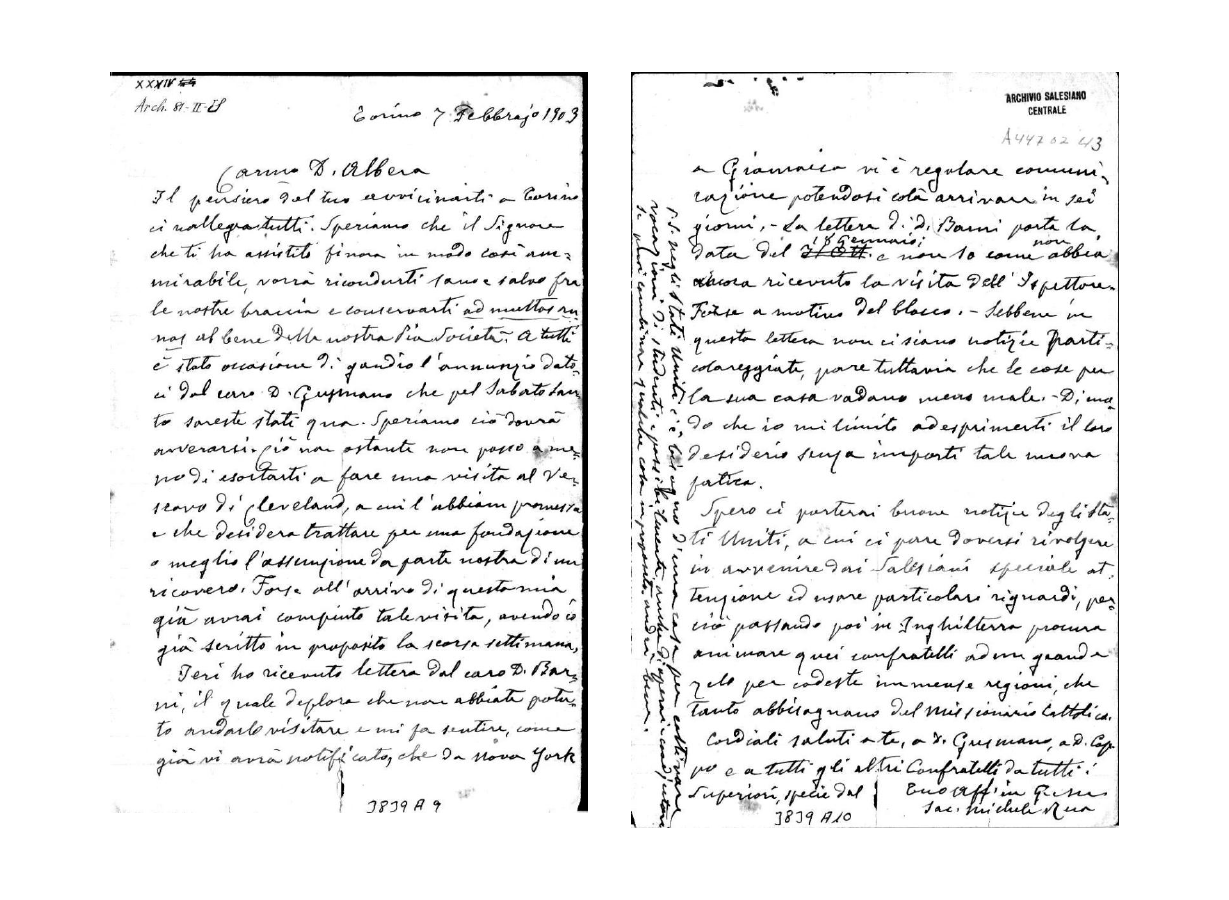 XXXIV
Arch. 81-II-
Torino 7 Febbrajo 1903
Carmo D. Albera
Il pensiero del tuo avvicinarti a Torino
ci rallegra tutti. Speriamo che il Signore
che ti ha assistito finora in modo così am=
mirabile, vorrà ricondurti sano e salvo fra
le nostre braccia e conservarti ad multos an=
nos al bene della nostra Pia Società. A tutti
è stato occasione di gaudio l'annunzio dato=
ci dal caro D. Gusmano che pel Sabato San
to sareste stati qua. Speriamo ciò dovrà
avverarsi. Ciò non ostante non posso a me=
no di esortarti a fare una visita al Ve=
scovo di Cleveland, a cui l'abbiam promessa
e che desidera trattare per una fondazione
o meglio l'assunzione da parte nostra di un
ricovero. Forse all'arrivo di questa mia
già avrai compiuto tale visita, avendo io
già scritto in proposito la scorsa settimana.
Ieri ho ricevuto lettera dal caro D. Bar=
ni, il quale deplora che non abbiate potu=
to andarlo visitare e mi fa sentire, come
già vi avrà notificato, che da Nova York
3839 A 9
ARCHIVIO SALESIANO
CENTRALE
A4470243
a Giamaica vi è regolare comuni=
cazione potendosi colà arrivare in sei
giorni. - La lettera di D. Barni porta la
18 Gennaio; non
data del e non so come abbia
ancora ricevuto la visita dell'Ispettore.
Forse a motivo del blocco. - Sebbene in
questa lettera non ci siano notizie parti=
colareggiate, pare tuttavia che le cose per
la sua casa vadano meno male. - Di mo=
do che io mi limito ad esprimerti il loro
desiderio senza importi tale nuova
fatica.
Spero ci porterai buone notizie degli Sta=
ti Uniti, a cui ci pare doversi rivolgere
in avvenire dai Salesiani speciale at=
tenzione ed usare particolari riguardi, per=
ciò passando poi in Inghilterra procura
animare quei confratelli ad un grande
zelo per codeste immense regioni, che
tanto abbisognano del Missionario Cattolico.
Cordiali saluti a te, a D. Gusmano, a D. Cop=
po e a tutti gli altri Confratelli da tutti i
Superiori, specie dal Tuo Aff. in G.
Sac. Michele Rua
3839 A10
P.S. Negli Stati Uniti c'è bisogno d'una casa per coltivare
vocazioni di studenti e possibilmente anche di operai coadjutori
se puoi combinare qualche cosa in proposito, andrà bene.